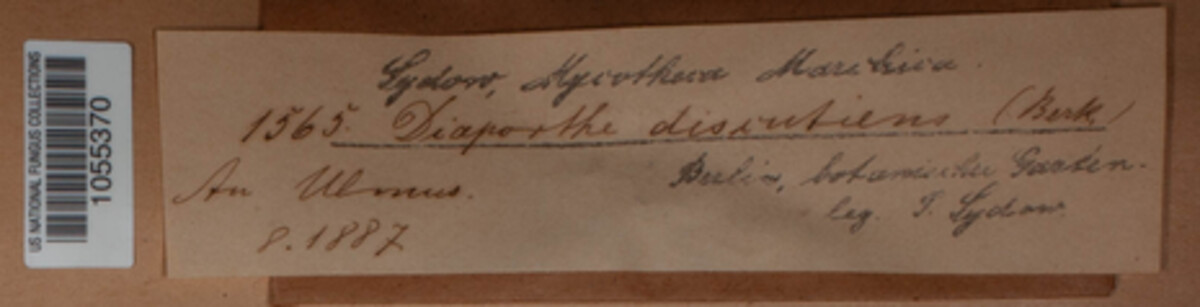 US NATIONAL FUNGUS COLLECTIONS
10553370
Sydow, Mycotheca Marchica.
1565. Diaporthe discutiens (Berk.)
An Ulmus.
8. 1887
Berlin, botanischer Garten.
leg. P. Sydow.